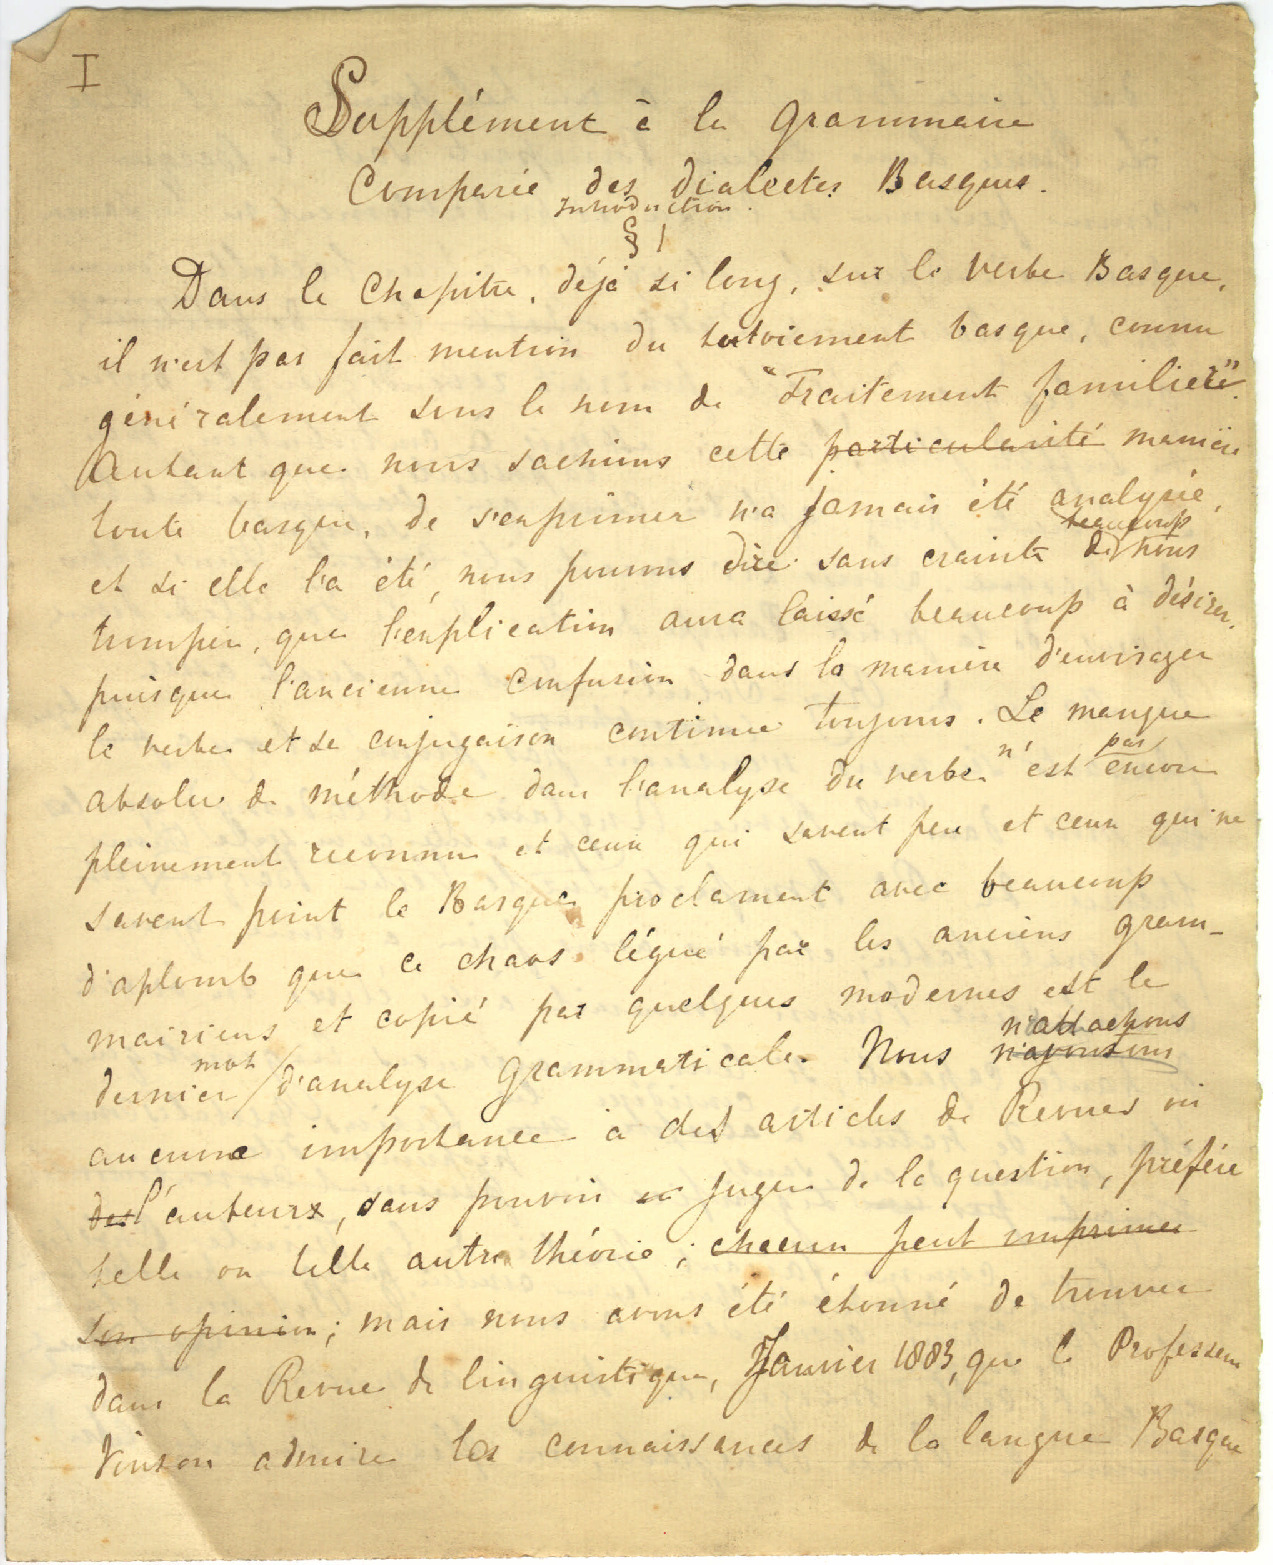 I
Supplément à la Grammaire
Comparée des dialectes Basques.
Introduction.
§ 1
Dans le Chapitre, déjà si long, sur le verbe Basque,
il n'est pas fait mention du tutoiement basque, connu
généralement sous le nom de "Traitement familier".
Autant que nous sachions cette particularité manière
toute basque, de s'exprimer n'a jamais été analysée,
beaucoup
et si elle l'a été, nous pouvons dire sans crainte de nous
tromper, que l'explication aura laissé beaucoup à désirer,
puisque l'ancienne confusion dans la manière d'envisager
le verbe et sa conjugaison continue toujours. Le manque
n' pas
absolu de méthode dans l'analyse du verbe est encore
pleinement reconnu et ceux qui savent peu et ceux qui ne
savent point le Basque proclament avec beaucoup
d'aplomb que ce chaos légué par les anciens gram-
mairiens et copié par quelques modernes est le
mot n'attachons
dernier d'analyse grammaticale. Nous n'ajoutons
aucune importance à des articles de Revues où
des l'auteurx, sans pouvoir en juger de la question, préfère
telle ou telle autre théorie; chacun peut imprimer
son opinion; mais nous avons été étonné de trouver
dans la Revue de linguistique, Janvier 1883, que le Professeur
Vinson admire les connaissances de la langue Basque